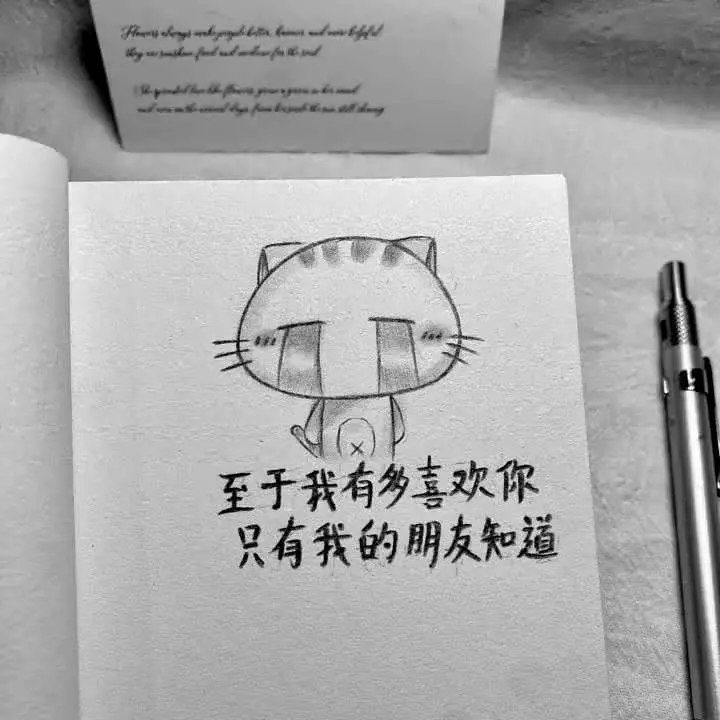 Flowers always make people better, happier, and more helpful;
they are sunshine, food and medicine for the soul.
She spreaded love like flowers, grows a green in her mind
and even on the coldest days, from her
至于我有多喜欢你
只有我的朋友知道